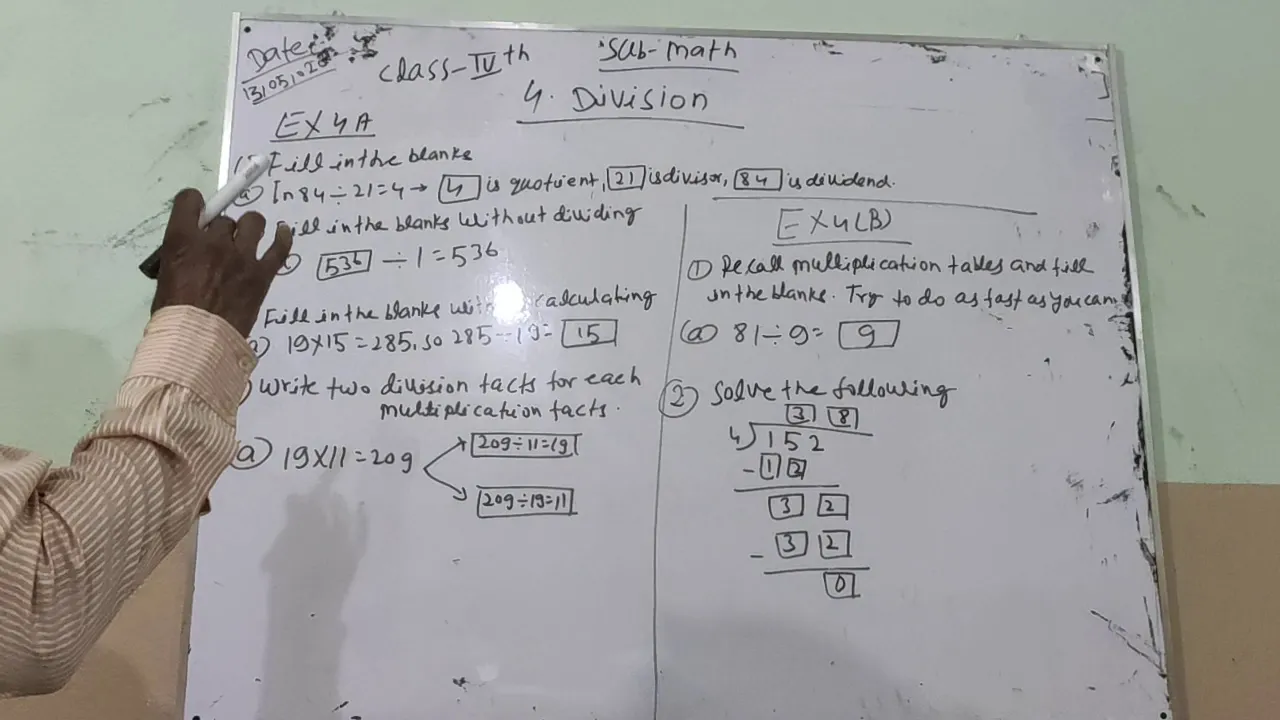 Date:-
31/05/202
Class-IVth
Sub-Math
4. Division
EX 4A
Fill in the blanks
(a) In 84÷21=4 → 4 is quotient, 21 is divisor, 84 is dividend.
Fill in the blanks without dividing
536 ÷ 1 = 536
Fill in the blanks calculating
19X15=285, so 285÷19= 15
Write two division facts for each
multiplication facts.
(a) 19X11=209
209÷11=19
209÷19=11
EX4(B)
① Recall multiplication tables and fill
in the blanks. Try to do as fast as you can
(a) 81÷9= 9
② Solve the following
3 8
4)152
- 1 2
3 2
- 3 2
0